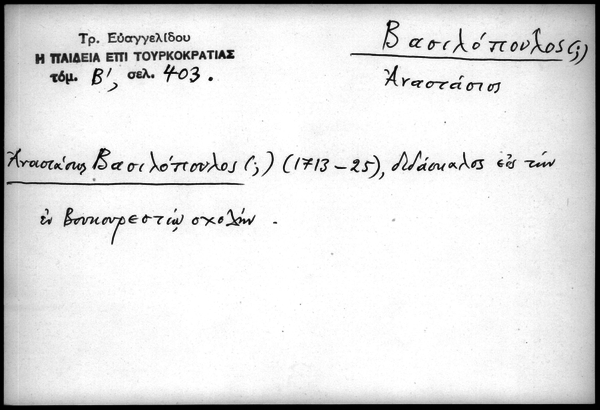 Τρ. Εὐαγγελίδου
Η ΠΑΙΔΕΙΑ ΕΠΙ ΤΟΥΡΚΟΚΡΑΤΙΑΣ
τόμ. Β', σελ. 403.
Βασιλόπουλος (;)
Ἀναστάσιος
Ἀναστάσιος Βασιλόπουλος (;) (1713-25), διδάσκαλος εἰς τὴν
ἐν Βουκουρεστίῳ σχολήν.